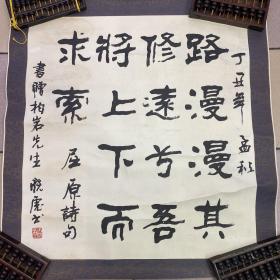 丁丑年 孟秋
路漫漫其
修遠兮吾
將上下而
求索 屈原詩句
書贈柏岩先生 晓虎書